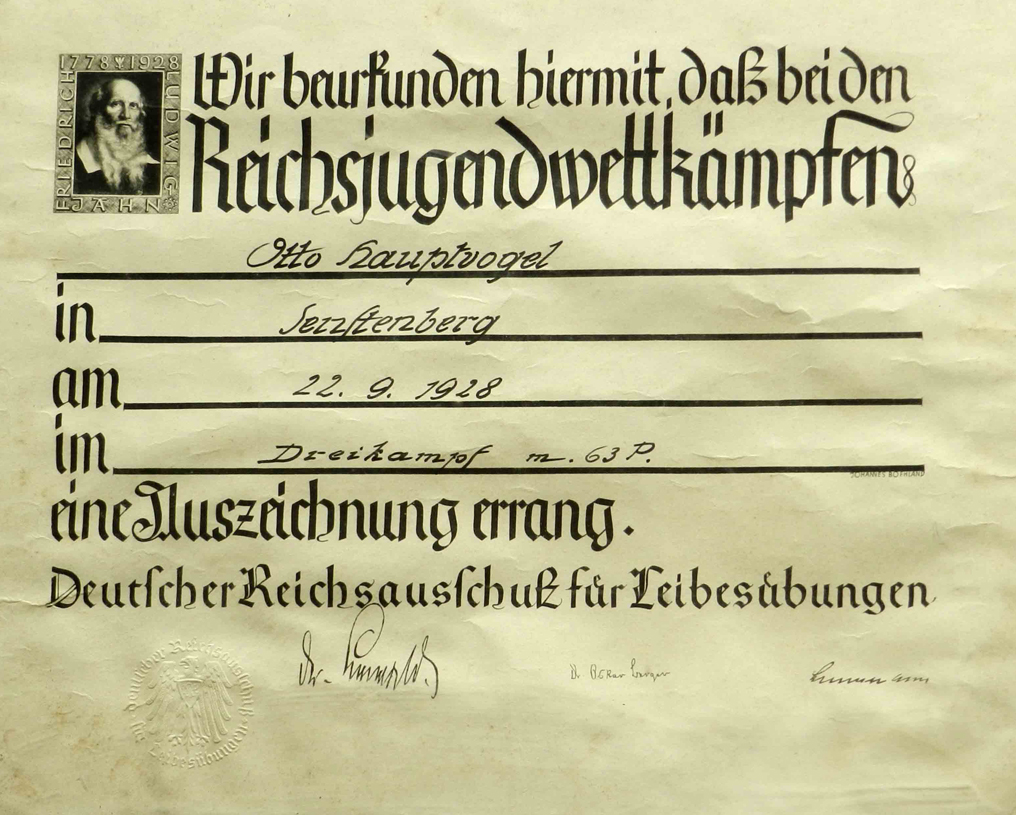 1778 1928
FRIEDRICH
LUDWIG
JAHN
Wir beurkunden hiermit, daß bei den
Reichsjugendwettkämpfen
Otto Hauptvogel
in Senftenberg
am 22. 9. 1928
im Dreikampf m. 63 P.
JOHANNES BOEHLAND
eine Auszeichnung errang.
Deutscher Reichsausschuß für Leibesübungen
Dr.
Deutscher Reichsausschuß für Leibesübungen